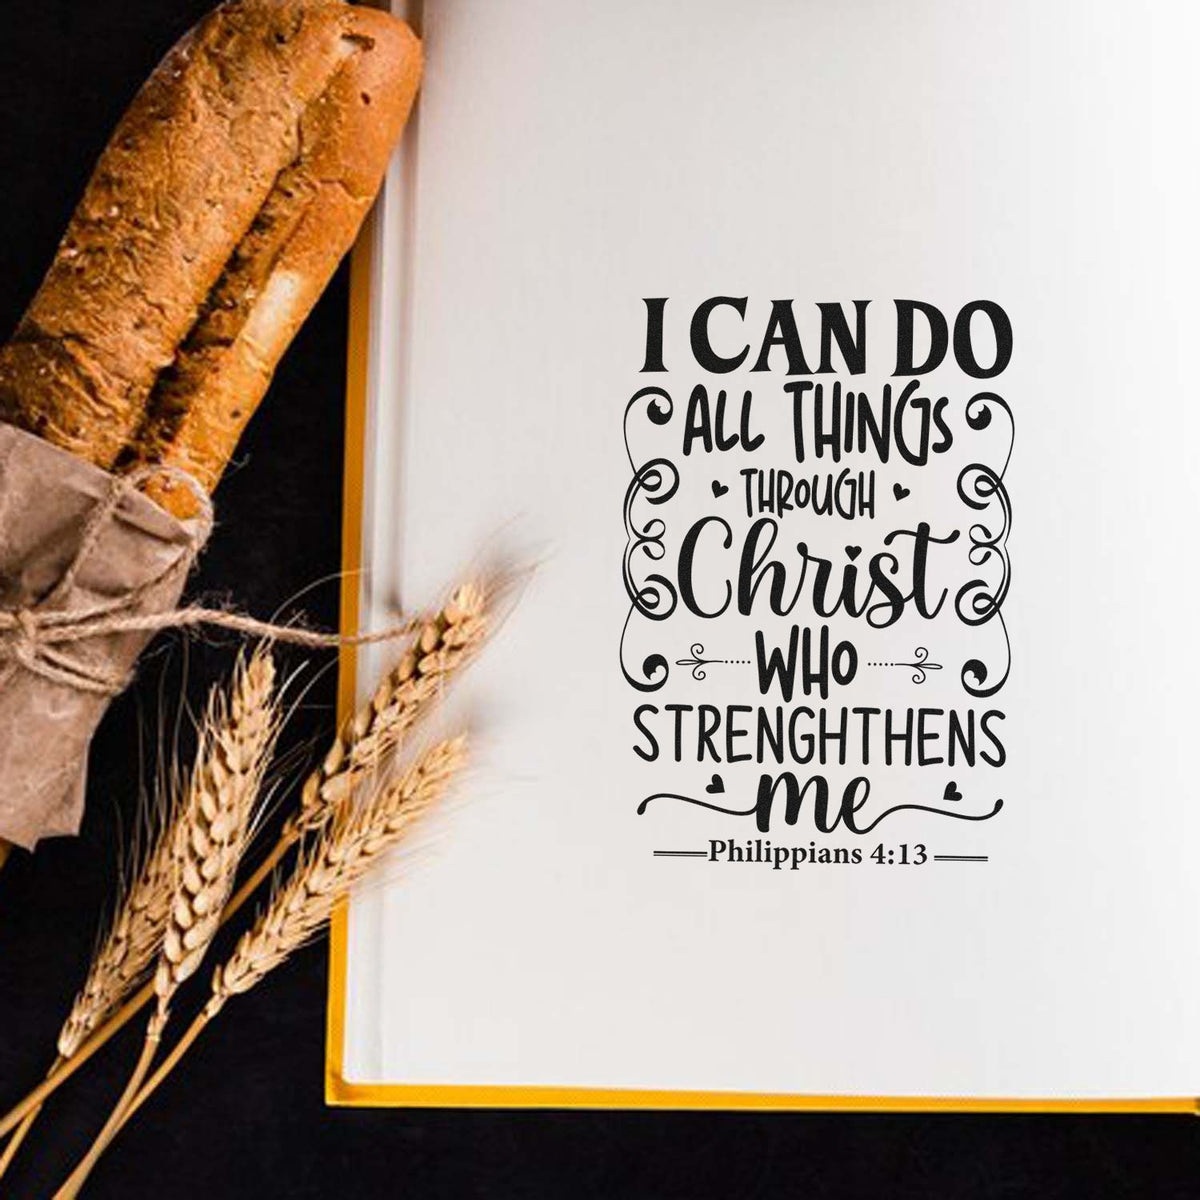 I CAN DO
ALL THINGS
THROUGH
Christ
WHO
STRENGHTHENS
me
Philippians 4:13